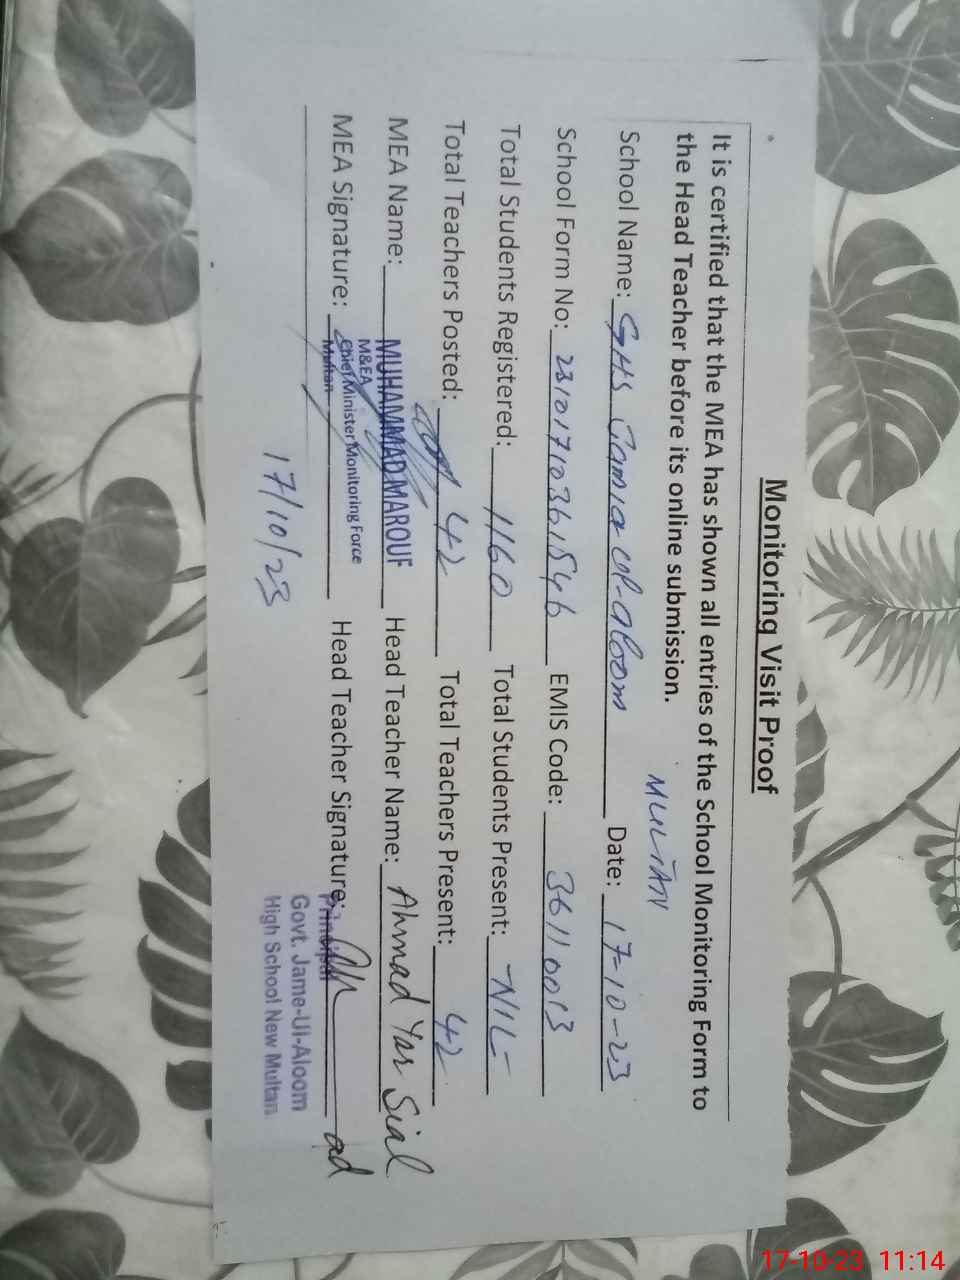 Monitoring Visit Proof
It is certified that the MEA has shown all entries of the School Monitoring Form to
the Head Teacher before its online submission.
MULTAN
School Name: GHS Jamia-ul-aloom Date: 17-10-23
School Form No: 23101710361546 EMIS Code: 36110013
Total Students Registered: 1160 Total Students Present: -NIL-
Total Teachers Posted: 42 Total Teachers Present: 42
MEA Name: MUHAMMAD MAROUF Head Teacher Name: Ahmad Yar Sial
M&EA
Chief Minister Monitoring Force
Multan
MEA Signature: Head Teacher Signature:
17/10/23
Principal
Govt. Jame-Ul-Aloom
High School New Multan
17-10-23 11:14